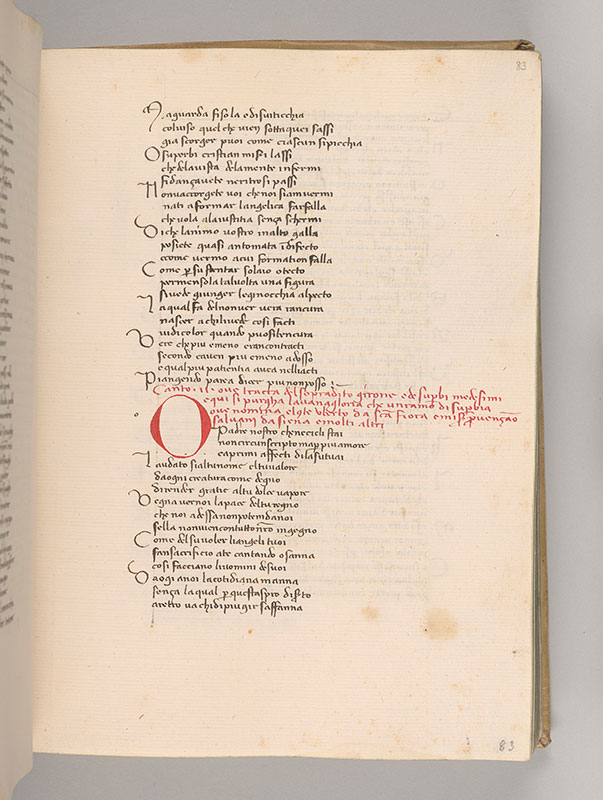 83
Ma guarda fiso la e disviticchia
col viso quel che vien sotta quei sassi
gia scorger puoi come ciascun si picchia
O superbi cristian miseri lassi
che dela vista dela mente infermi
fidança avete ne ritrosi passi
Non v acorgete voi che noi siam vermi
nati a formar langelica farfalla
che vola ala iustitia sença schermi
Di che lanimo vostro in alto galla
poi siete quasi antomata in difecto
come vermo a cui formation falla
Come per sustentar solaio o tecto
per mensola talvolta una figura
si vede giunger le ginocchia al pecto
La qual fa del non ver vera rancura
nascer a chi la vede cosi facti
vidi color quando puosi ben cura
Vero e che piu e meno eran contracti
secondo cavien piu e meno adosso
e qual piu patientia avea nelli acti
Piangendo parea dicer piu non posso
Canto .11. ove tracta del sopradito girone e de superbi medesimi
e qui si purgha la vana gloria che e un ramo di superbia
ove nomina el conte Uberto da sca fiora e miser provençano
salvanj da siena e molti altri
O Padre nostro che ne cieli stai
non circunscripto ma per piu amore
ca primi affecti di la su tu ai
Laudato sia l tu nome e l tu valore
da ogni creatura come degno
di render gratie al tu dolce vapore
Vegna ver noi la pace del tu regno
che noi ad essa non potem da noi
sella non vien con tutto nostro ingegno
Come del su voler li angeli tuoi
fan sacrificio a te cantando osanna
cosi facciano li uomini de suoi
Da ogi a noi la cotidiana manna
sença la qual per questo aspro diserto
a retro va chi di piu gir saffanna
83